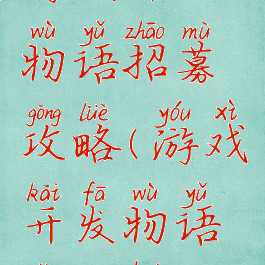 wù yǔ zhāo mù
物语招募
gōng lüè yóu xì
攻略(游戏
kāi fā wù yǔ
开发物语